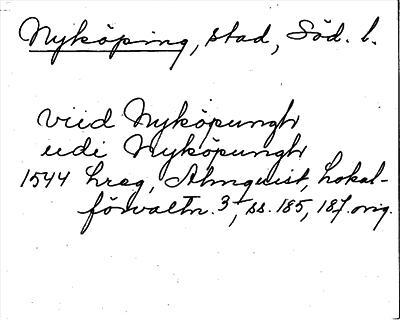 Nyköping, stad, Söd. l.
viid Nyköpungh
udi Nyköpungh
1544 hreg, Almquist, Lokal-
förvaltn. 3, ss. 185, 187. orig.